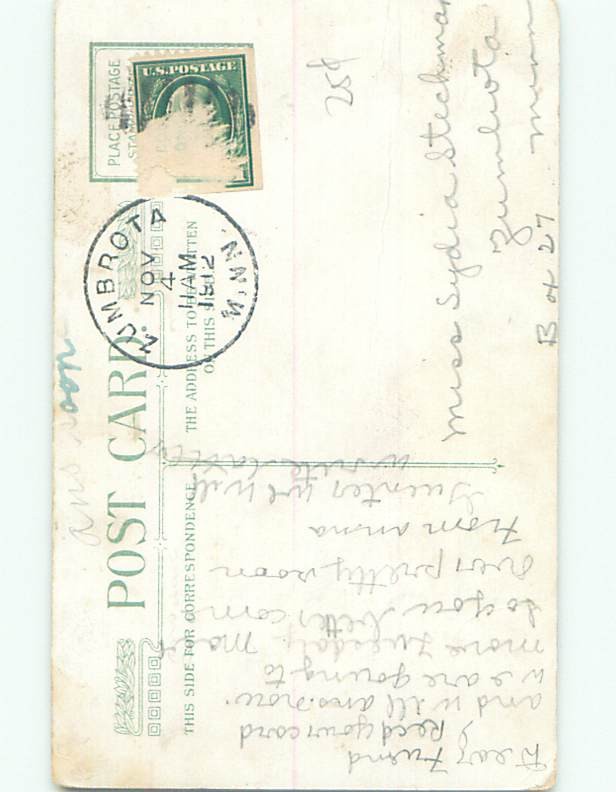 POST CARD
PLACE POSTAGE
STAMP HERE
U.S. POSTAGE
ZUMBROTA
NOV
4
11 AM
1912
MINN.
ans soon
THIS SIDE FOR CORRESPONDENCE.
THE ADDRESS TO BE WRITTEN
ON THIS SIDE
25¢
Miss Lydia Steckman
Zumbrota
Minn
Box 27
Dear Friend
I Recd your card
and will answer.
we are going to
move Tuesday
so you better com
over pretty soon
from anna
we will
write later